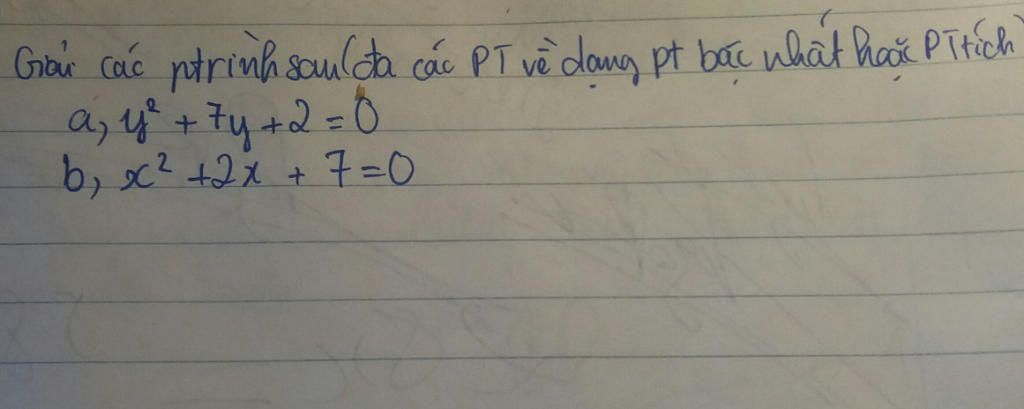 Giải các ptrình sau(đa các PT về dạng pt bậc nhất hoặc PT tích)
a, y² + 7y + 2 = 0
b, x² + 2x + 7 = 0